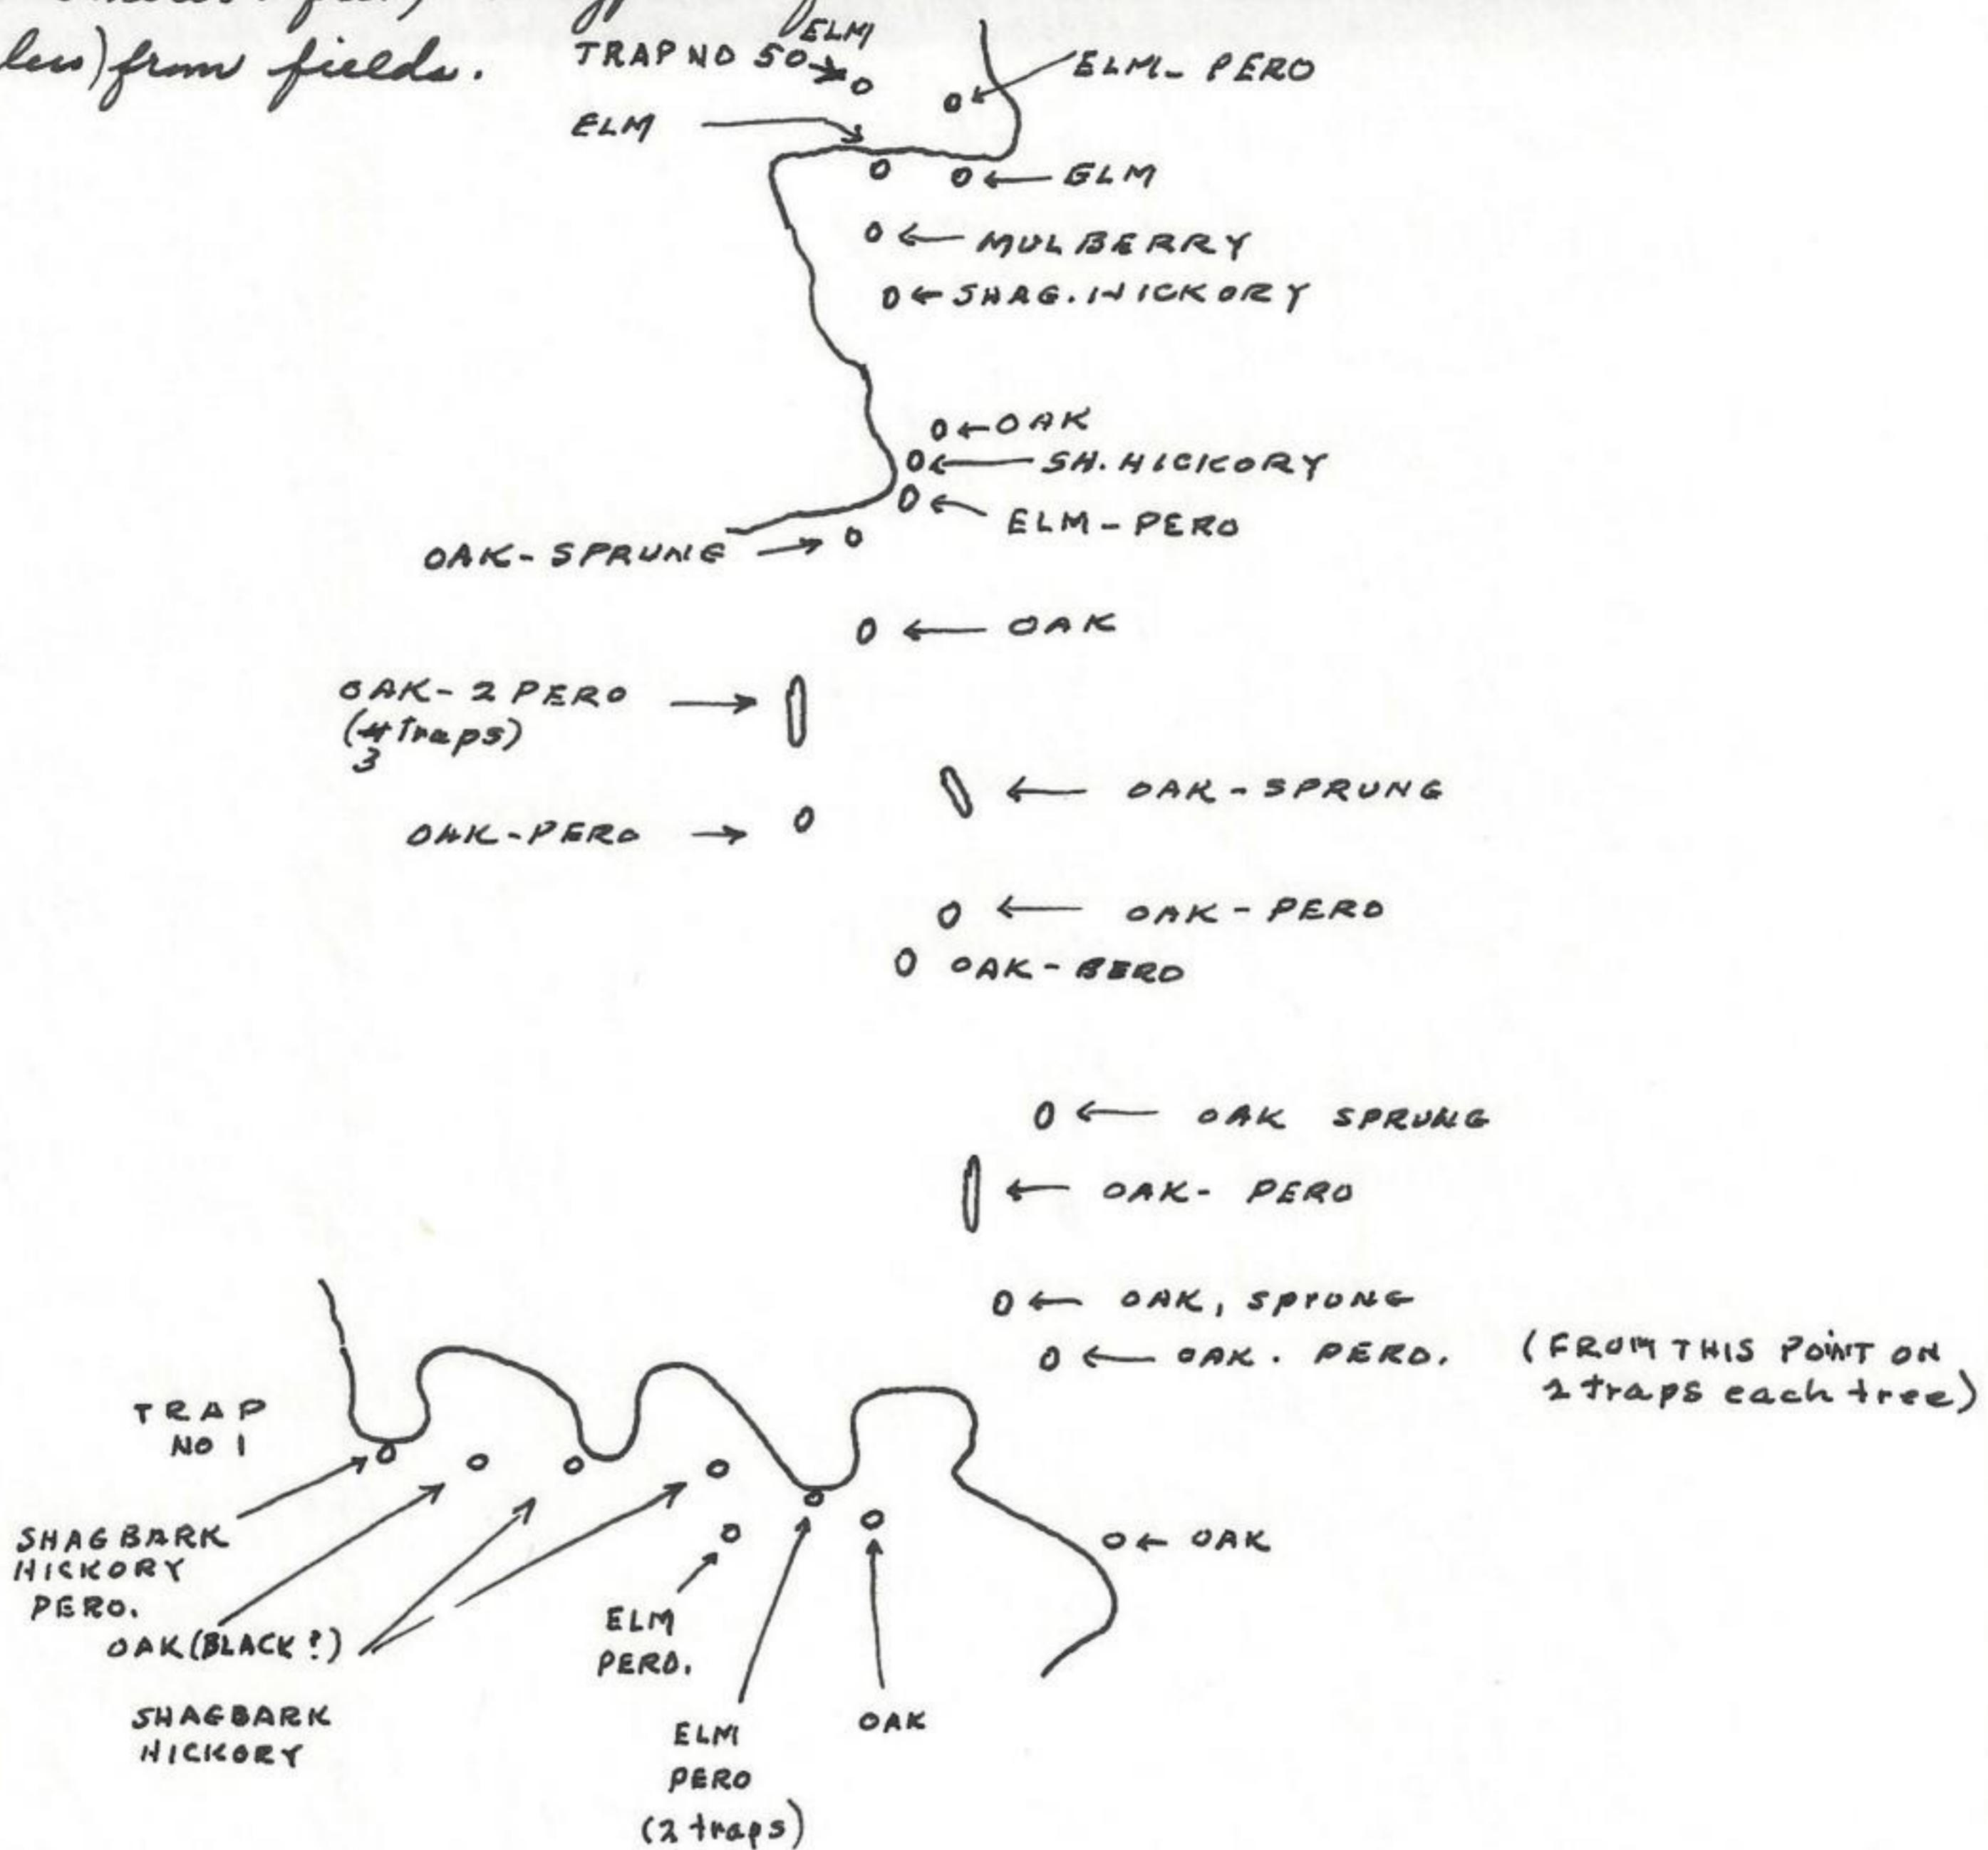 less) from fields.
ELM
TRAP NO 50
ELM - PERO
ELM
ELM
MULBERRY
SHAG. HICKORY
OAK
SH. HICKORY
ELM - PERO
OAK - SPRUNG
OAK
OAK - 2 PERO
(4 Traps)
3
OAK - SPRUNG
OAK - PERO
OAK - PERO
OAK - PERO
OAK SPRUNG
OAK - PERO
OAK, SPrUNG
OAK. PERO.
(FROM THIS POINT ON
2 traps each tree)
TRAP
NO 1
SHAGBARK
HICKORY
PERO.
OAK
OAK (BLACK?)
ELM
PERO.
SHAGBARK
HICKORY
ELM
PERO
(2 traps)
OAK